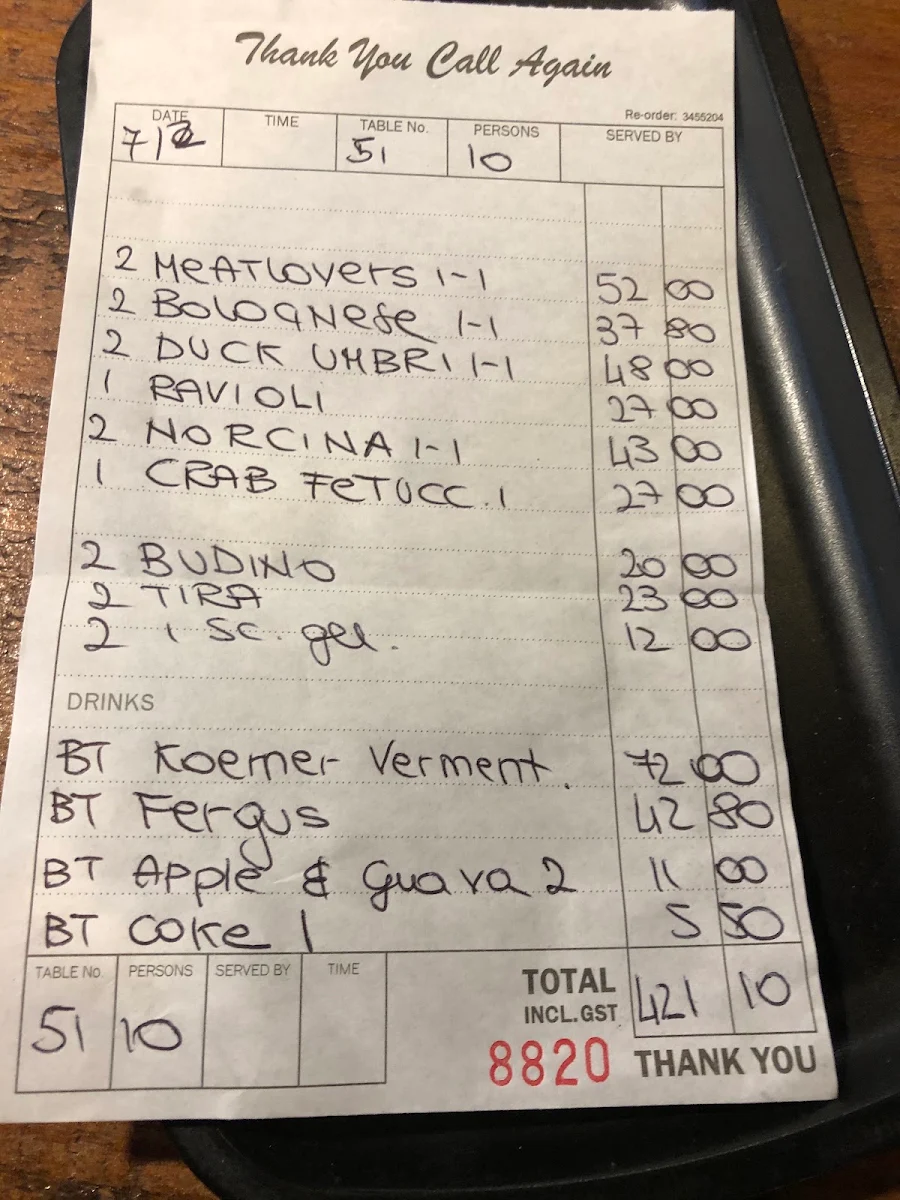 Thank You Call Again
Re-order: 3455204
DATE TIME TABLE No. PERSONS SERVED BY
7/2 51 10
2 MeATLOVERS 1-1 52 00
2 BOLOGNESE 1-1 37 80
2 DUCK UMBRI 1-1 48 00
1 RAVIOLI 27 00
2 NORCINA 1-1 43 00
1 CRAB FETUCC. 1 27 00
2 BUDINO 20 00
2 TIRA 23 00
2 1 SC. gel. 12 00
DRINKS
BT Koerner Verment. 72 00
BT Fergus 42 80
BT Apple & Guava 2 11 00
BT Coke 1 5 50
TABLE No. PERSONS SERVED BY TIME TOTAL INCL.GST 421 10
51 10
8820 THANK YOU